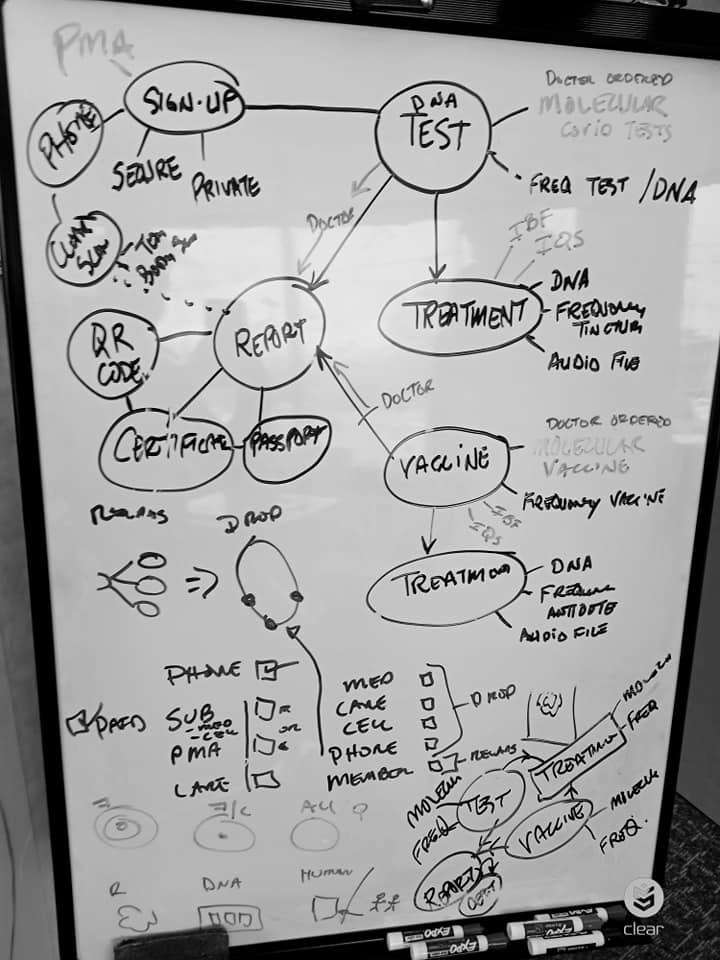 PMA
SIGN-UP
PHONE
SECURE
PRIVATE
DNA
TEST
DOCTOR ORDERED
MOLECULAR
COVID TESTS
FREQ TEST / DNA
DOCTOR
IBF
IQS
TREATMENT
DNA
FREQUENCY
AUDIO FILE
REPORT
QR
CODE
DOCTOR
PASSPORT
VACCINE
DOCTOR ORDERED
MOLECULAR
VACCINE
FREQUENCY VACCINE
IBF
IQS
DROP
=>
TREATMENT
DNA
ANTIDOTE
AUDIO FILE
PHONE
PAID
SUB
-MED
-CELL
PMA
CARE
OR
MED
CARE
CELL
PHONE
MEMBER
DROP
TREATMENT
FREQ
TEST
FREQ
VACCINE
FREQ.
REPORT
ALL
DNA
HUMAN
EXPO
EXPO
EXPO
clear